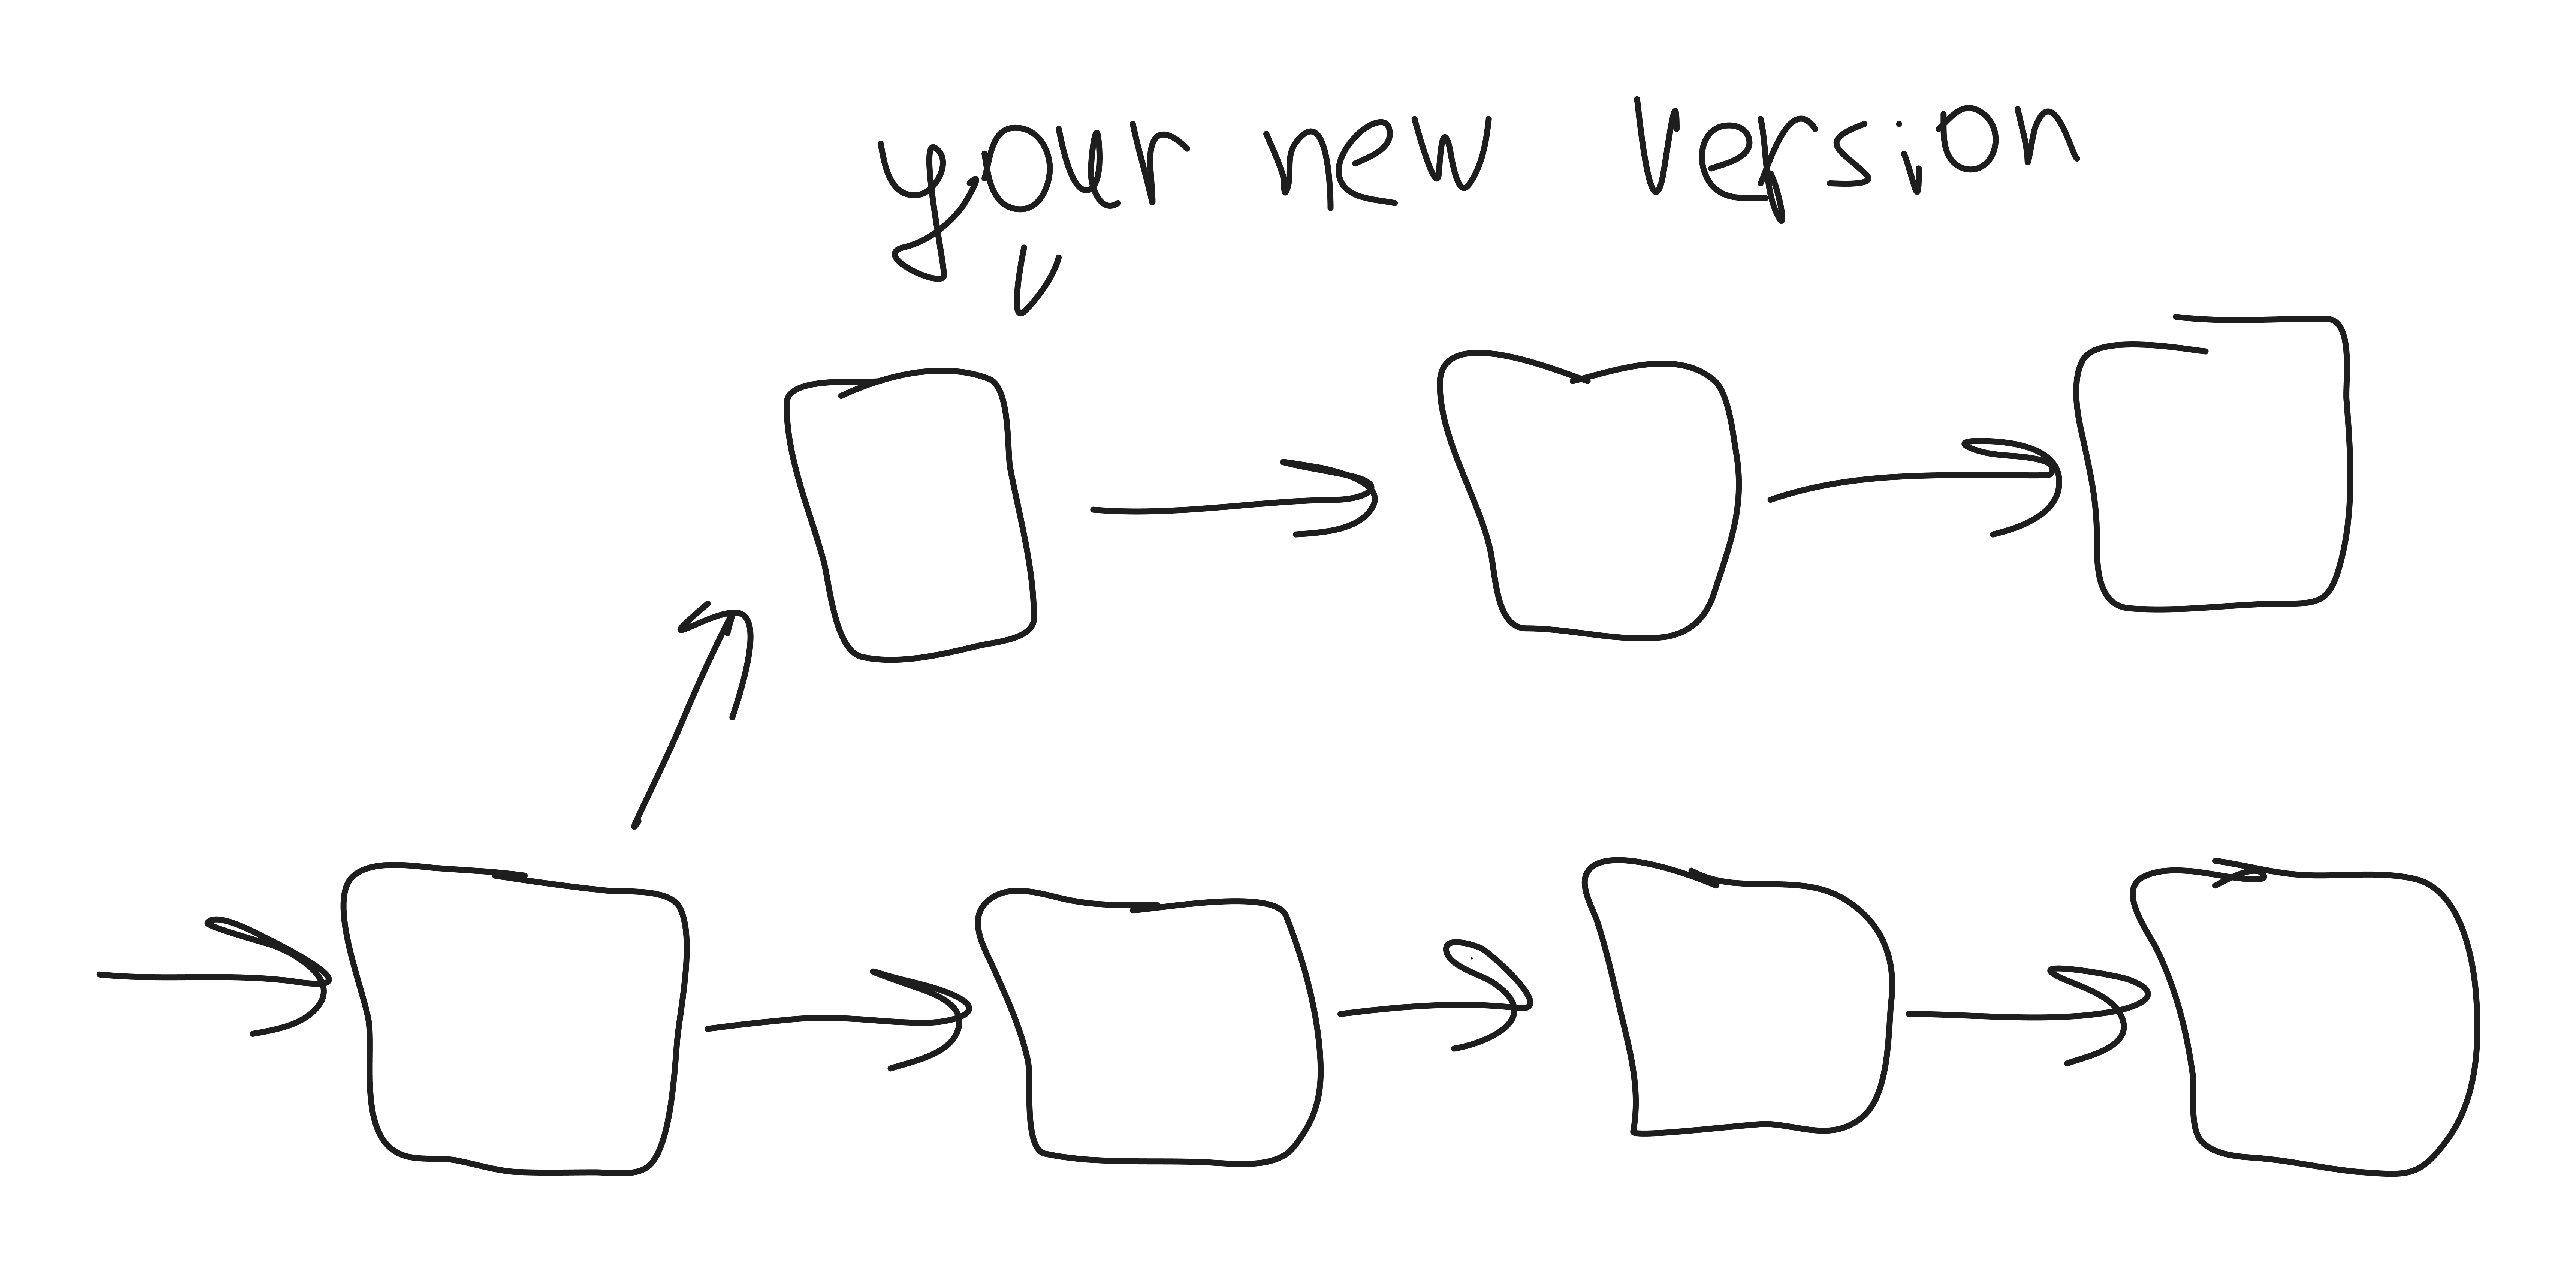 your new version